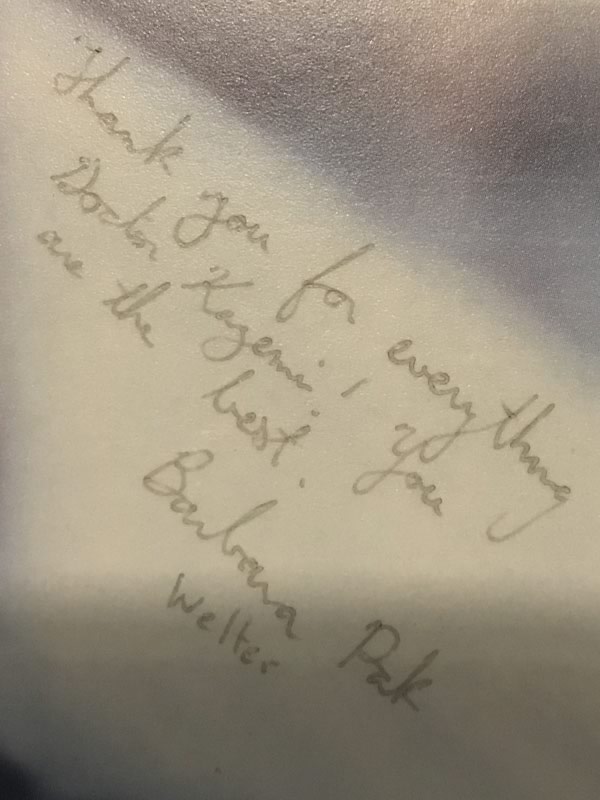 Thank you for everything
Doctor Kazemi! you
are the best.
Barbara Pak
Welter